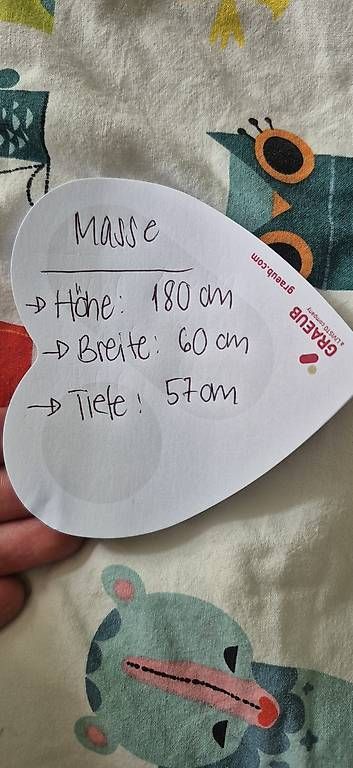 Masse
→ Höhe: 180 cm
→ Breite: 60 cm
→ Tiefe: 57 cm
graeub.com
GRAEUB